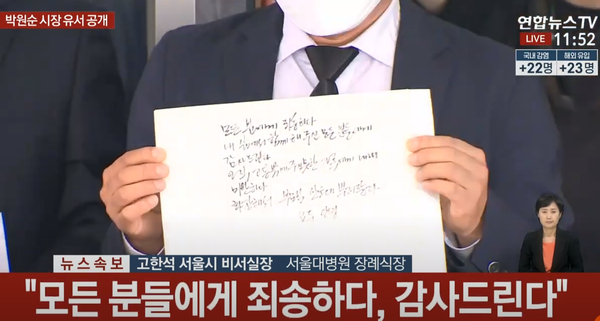 박원순 시장 유서 공개
연합뉴스TV
LIVE 11:52
국내 감염 해외 유입
+22명 +23명
모든 분에게 죄송하다
내 삶에서 함께 해주신 모든 분에게
감사드린다
오직 고통밖에 주지 못한 가족에게 내내
미안하다
모두 안녕
뉴스속보 고한석 서울시 비서실장 서울대병원 장례식장
"모든 분들에게 죄송하다, 감사드린다"